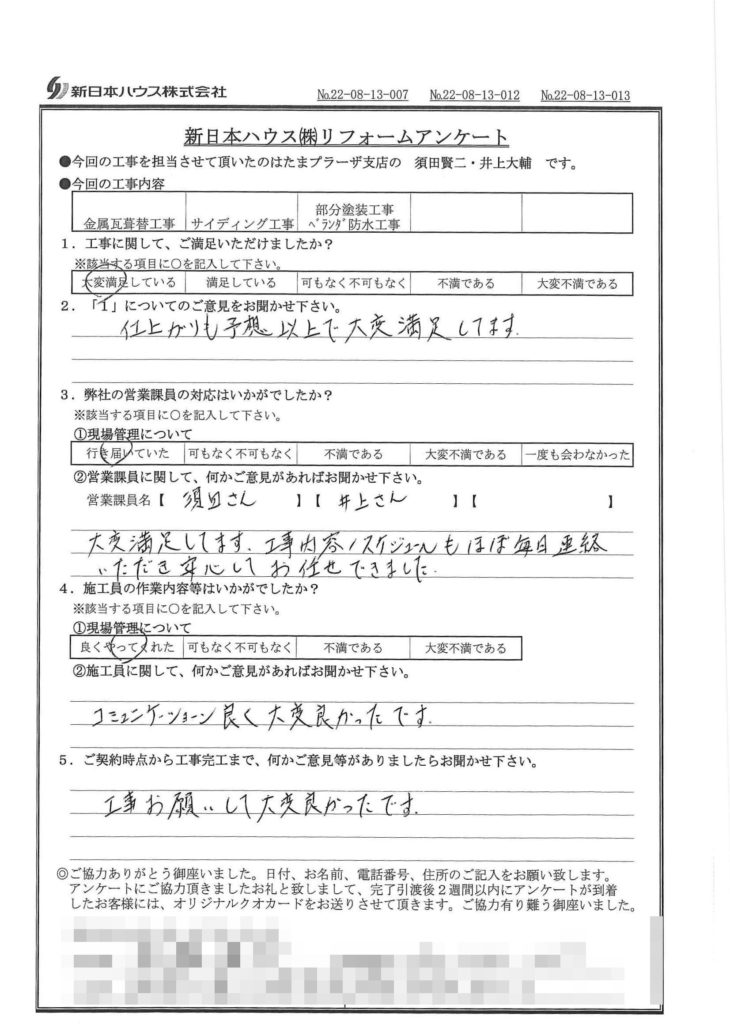 新日本ハウス株式会社 No.22-08-13-007 No.22-08-13-012 No.22-08-13-013
新日本ハウス㈱リフォームアンケート
●今回の工事を担当させて頂いたのはたまプラーザ支店の 須田賢二・井上大輔 です。
●今回の工事内容
金属瓦葺替工事 サイディング工事 部分塗装工事 ベランダ防水工事
1．工事に関して、ご満足いただけましたか？
※該当する項目に○を記入して下さい。
大変満足している 満足している 可もなく不可もなく 不満である 大変不満である
2．「1」についてのご意見をお聞かせ下さい。
仕上がりも予想以上で大変満足してます.
3．弊社の営業課員の対応はいかがでしたか？
※該当する項目に○を記入して下さい。
①現場管理について
行き届いていた 可もなく不可もなく 不満である 大変不満である 一度も会わなかった
②営業課員に関して、何かご意見があればお聞かせ下さい。
営業課員名【 須田さん 】【 井上さん 】【 】
大変満足してます. 工事内容/スケジュールもほぼ毎日連絡
いただき安心してお任せできました.
4．施工員の作業内容等はいかがでしたか？
※該当する項目に○を記入して下さい。
①現場管理について
良くやってくれた 可もなく不可もなく 不満である 大変不満である
②施工員に関して、何かご意見があればお聞かせ下さい。
コミュニケーション良く大変良かったです.
5．ご契約時点から工事完工まで、何かご意見等がありましたらお聞かせ下さい。
工事お願いして大変良かったです.
◎ご協力ありがとう御座いました。日付、お名前、電話番号、住所のご記入をお願い致します。
アンケートにご協力頂きましたお礼と致しまして、完了引渡後2週間以内にアンケートが到着
したお客様には、オリジナルクオカードをお送りさせて頂きます。ご協力有り難う御座いました。